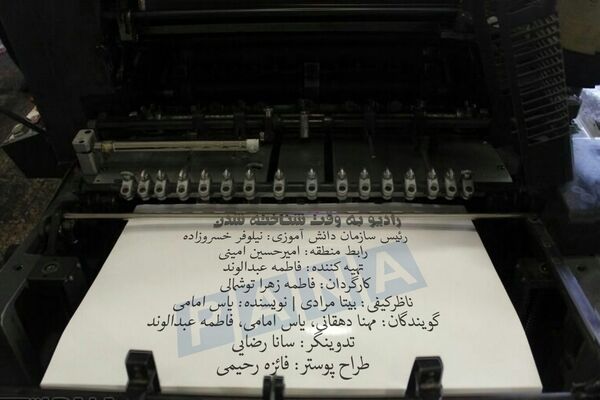 رادیو به وقت شناخته شدن
رئیس سازمان دانش آموزی: نیلوفر خسروزاده
رابط منطقه: امیرحسین امینی
تهیه کننده: فاطمه عبدالوند
کارگردان: فاطمه زهرا توشمالی
ناظرکیفی: بیتا مرادی | نویسنده: یاس امامی
گویندگان: مهنا دهقانی، یاس امامی، فاطمه عبدالوند
تدوینگر: سانا رضایی
طراح پوستر: فائزه رحیمی
PANA